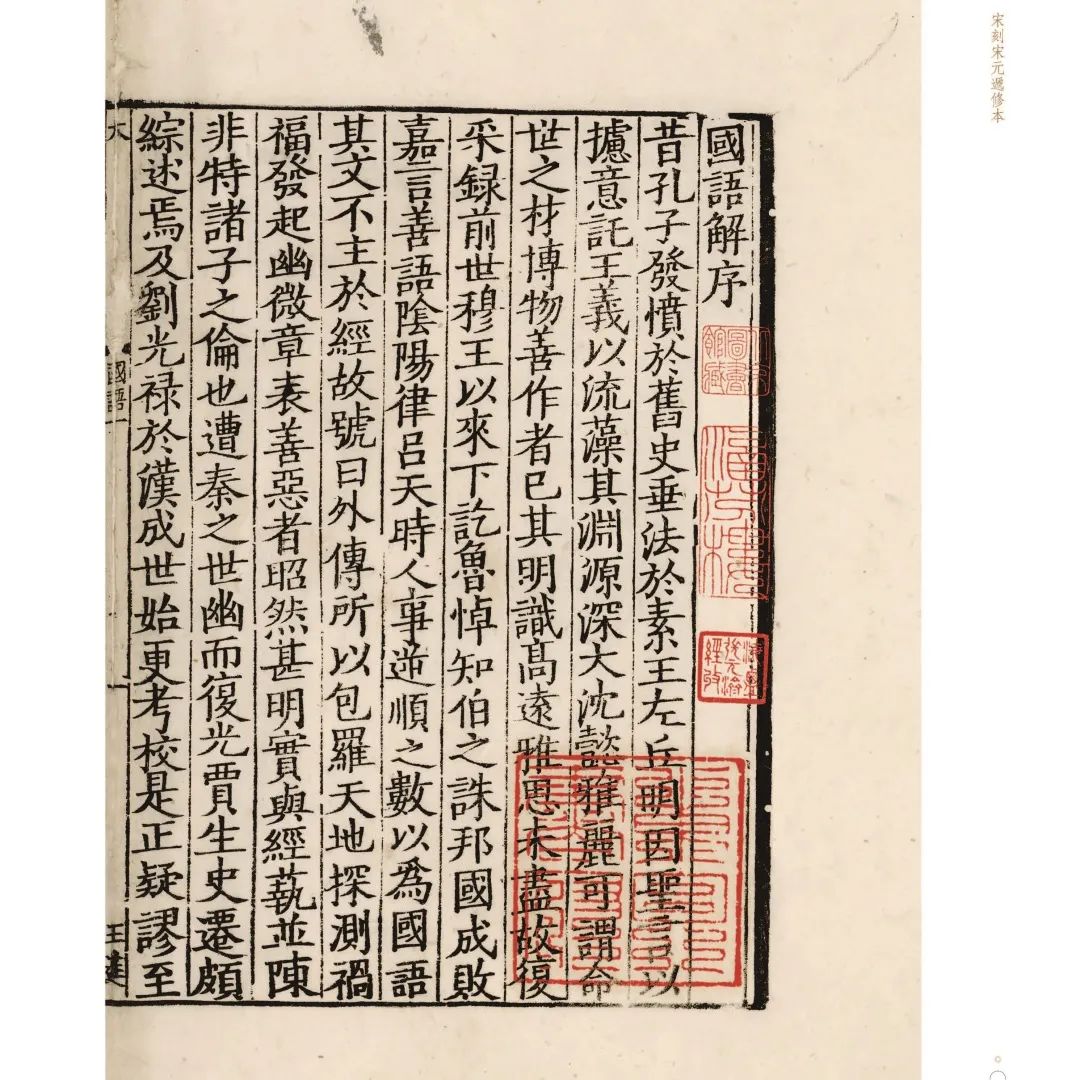 宋刻宋元遞修本
國語解序
昔孔子發憤於舊史垂法於素王左丘明因聖言以
攄意託王義以流藻其淵源深大沈懿雅麗可謂命
世之材博物善作者已其明識高遠雅思未盡故復
采録前世穆王以來下訖魯悼知伯之誅邦國成敗
嘉言善語陰陽律吕天時人事逆順之數以為國語
其文不主於經故號曰外傳所以包羅天地探測禍
福發起幽微章表善惡者昭然甚明實與經藝並陳
非特諸子之倫也遭秦之世幽而復光賈生史遷頗
綜述焉及劉光禄於漢成世始更考校是正疑謬至
國語
涵芬樓
海鹽張元濟經收